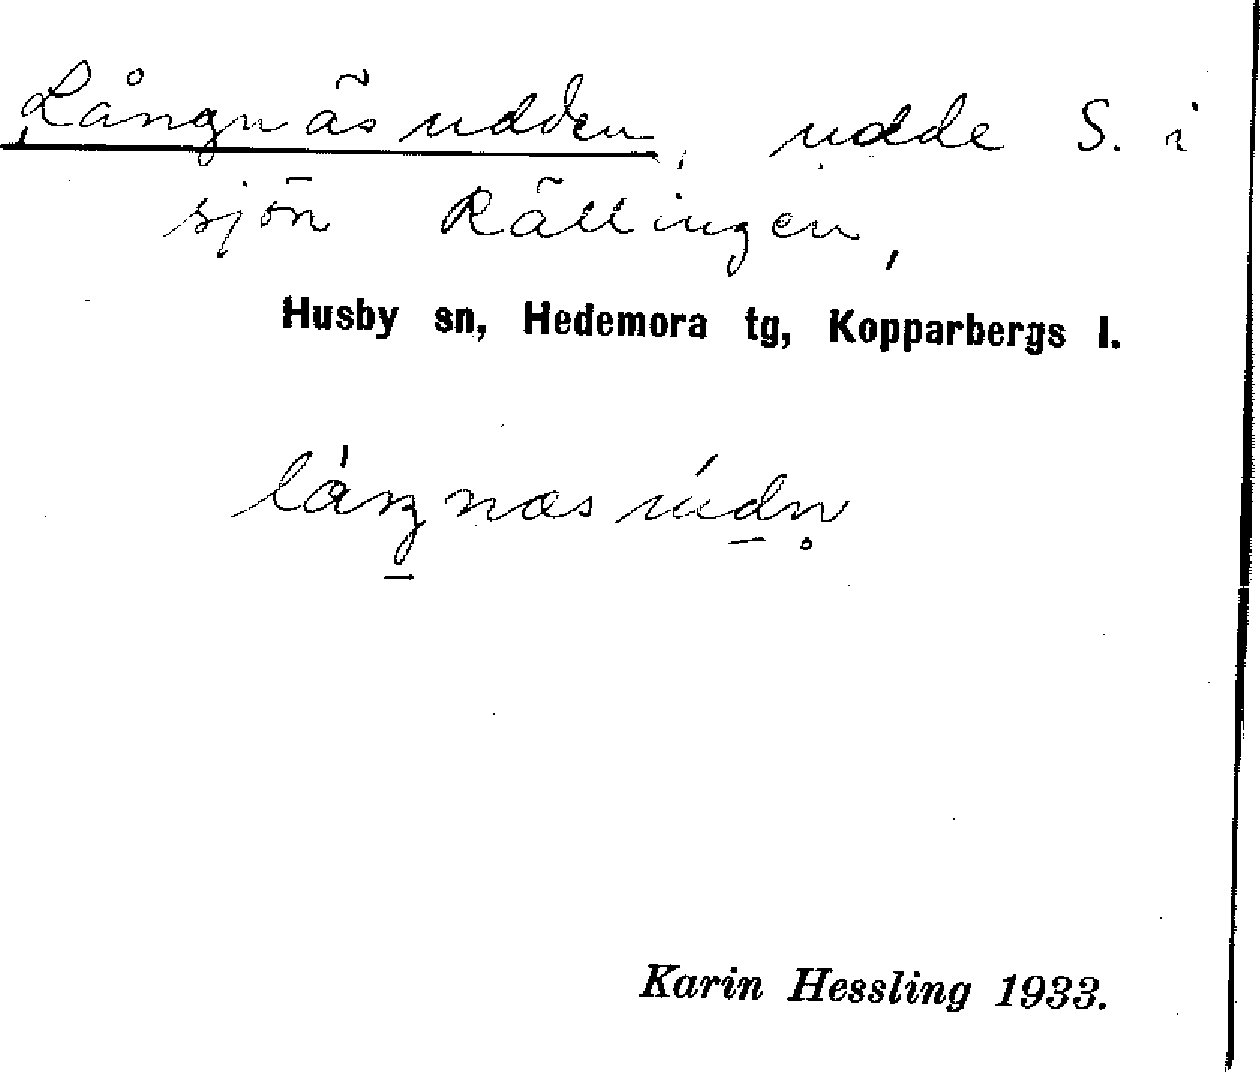 Långnäsudden, udde S. i
sjön Rällingen,
Husby sn, Hedemora tg, Kopparbergs l.
Karin Hessling 1933.